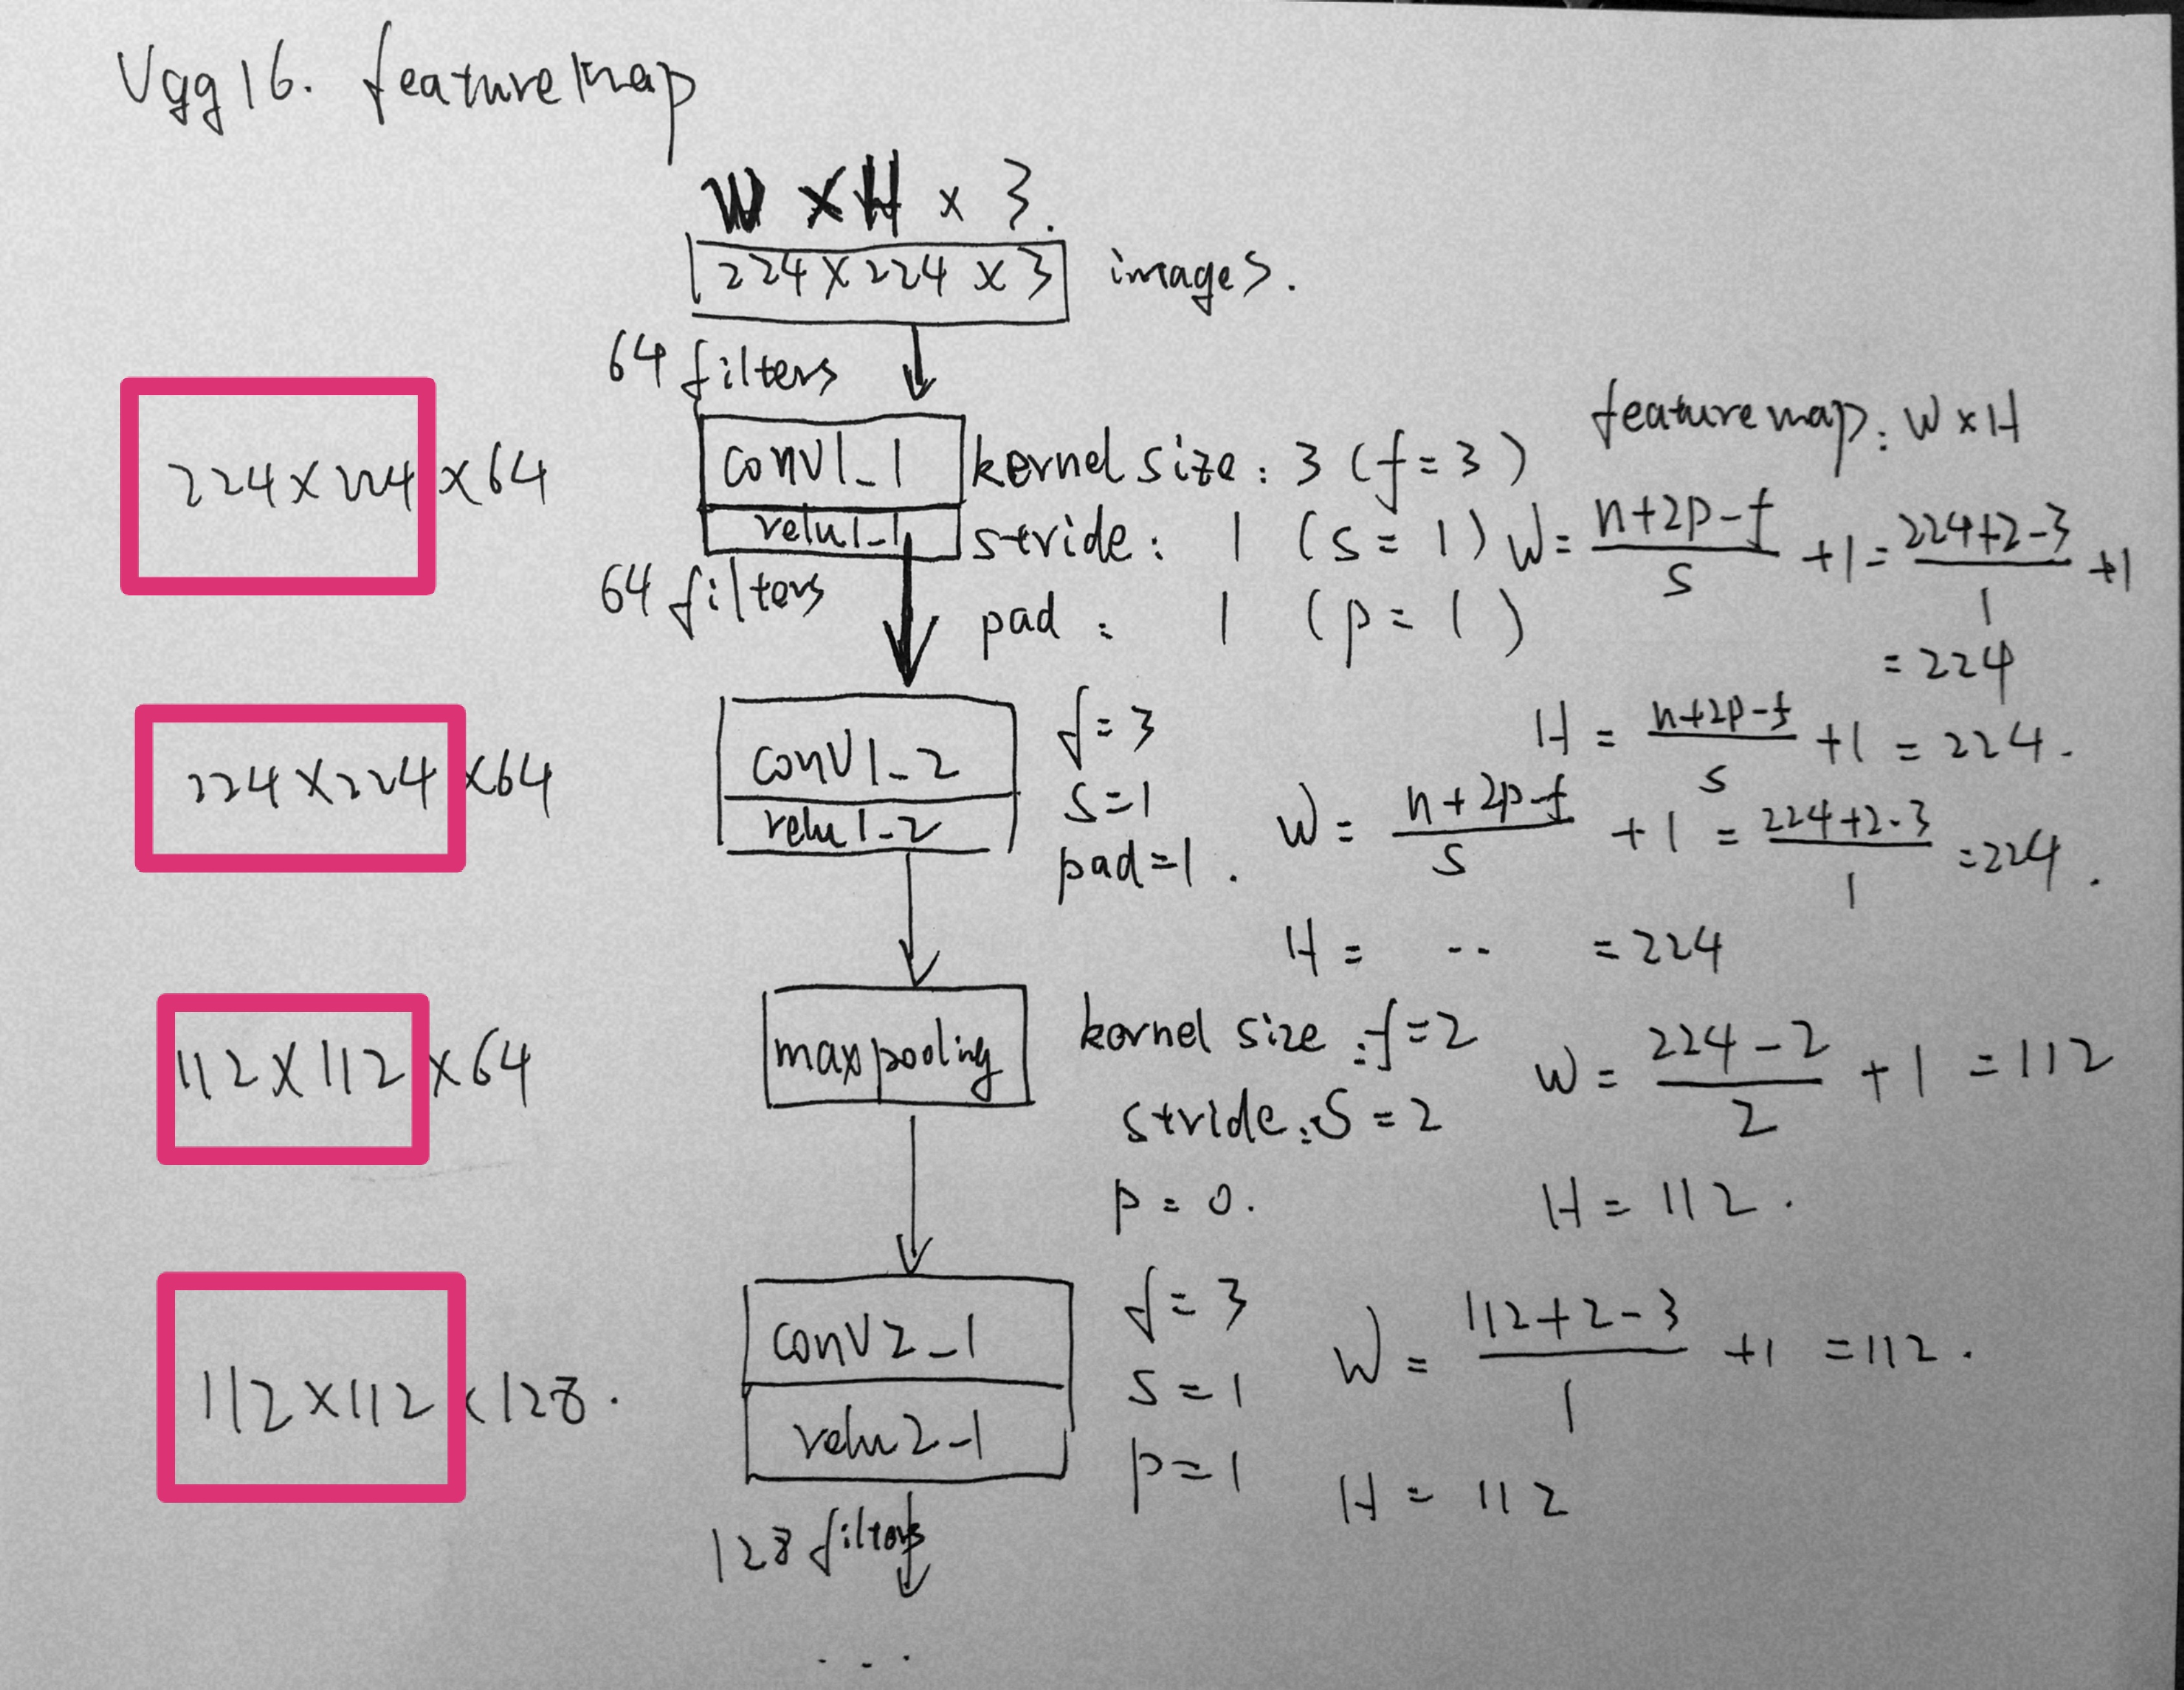 Vgg16. feature map
W × H × 3.
224 × 224 × 3 images.
64 filters
feature map: W × H
224 × 224 × 64
conv1_1
kernel size: 3 (f = 3)
relu1_1
stride: 1 (s = 1)
W = (n+2p-f)/s + 1 = (224+2-3)/1 + 1
64 filters
pad: 1 (p = 1)
= 224
H = (n+2p-f)/s + 1 = 224.
224 × 224 × 64
conv1_2
relu1_2
f = 3
s = 1
pad = 1.
W = (n+2p-f)/s + 1 = (224+2-3)/1 = 224.
H = -- = 224
112 × 112 × 64
maxpooling
kernel size: f = 2
stride: S = 2
p = 0.
W = (224-2)/2 + 1 = 112
H = 112.
112 × 112 × 128.
conv2_1
relu2_1
f = 3
s = 1
p = 1
W = (112+2-3)/1 + 1 = 112.
H = 112
128 filters
...